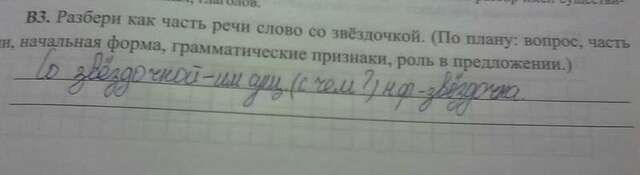 глаголов.
В3. Разбери как часть речи слово со звёздочкой. (По плану: вопрос, часть
и, начальная форма, грамматические признаки, роль в предложении.)
Со звёздочкой-им сущ (с чем?) н.ф-звёздочка.